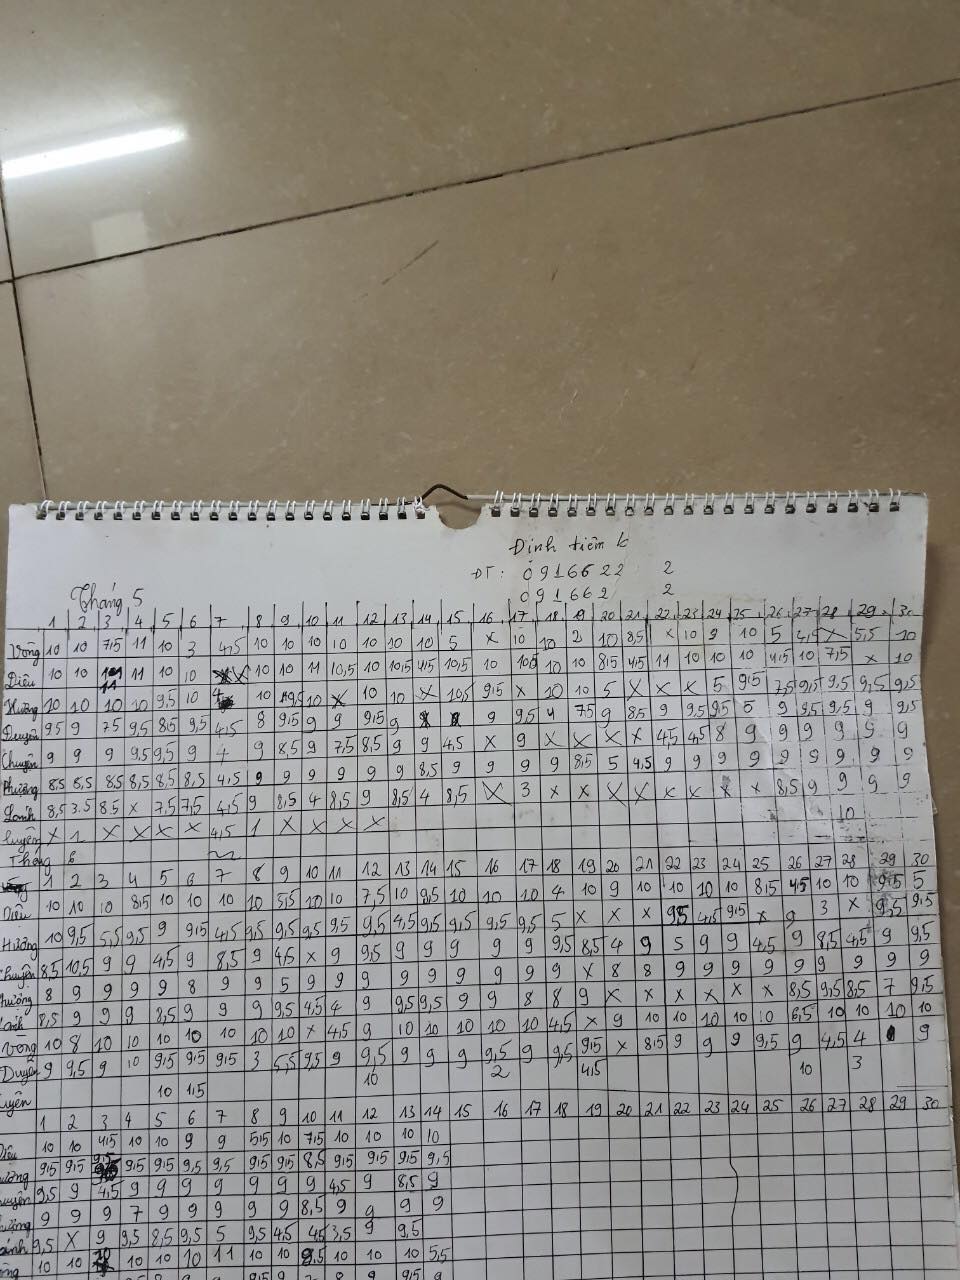 Định tiêm k
ĐT: 0916622 2
091662 2
Tháng 5
1 2 3 4 5 6 7 8 9 10 11 12 13 14 15 16 17 18 19 20 21 22 23 24 25 26 27 28 29 30
Vòng 10 10 7,5 11 10 3 4,5 10 10 10 10 10 10 10 5 x 10 10 2 10 8,5 x 10 9 10 5 4,5 x 5,5 10
Diêu 10 10 11 11 10 10 x x 10 10 11 10,5 10 10,5 4,5 10,5 10 10,5 10 10 8,5 4,5 11 10 10 10 4,5 10 7,5 x 10
Hường 10 10 10 10 9,5 10 4 10 9,5 10 x 10 10 x 10,5 9,5 x 10 10 5 x x x 5 9,5 7,5 9,5 9,5 9,5 9,5
Duyên 9,5 9 7,5 9,5 8,5 9,5 4,5 8 9,5 9 9 9,5 9 x 9 9,5 4 7,5 9 8,5 9 9,5 9,5 5 9 9,5 9,5 9 9,5
Chuyên 9 9 9 9,5 9,5 9 4 9 8,5 9 7,5 8,5 9 9 4,5 x 9 x x x x 4,5 4,5 8 9 9 9 9 9 9
Phường 8,5 8,5 8,5 8,5 8,5 8,5 4,5 9 9 9 9 9 9 8,5 9 9 9 9 8,5 5 4,5 9 9 9 9 9 9 9 9 9
Lanh 8,5 3.5 8.5 x 7,5 7,5 4,5 9 8,5 4 8,5 9 8,5 4 8,5 x 3 x x x x x x x x 8,5 9 9 9 9
Luyên x 1 x x x x 4,5 1 x x x x 10
Tháng 6
1 2 3 4 5 6 7 8 9 10 11 12 13 14 15 16 17 18 19 20 21 22 23 24 25 26 27 28 29 30
Diêu 10 10 10 8,5 10 10 10 10 5,5 10 10 7,5 10 9,5 10 10 10 4 10 9 10 10 10 10 8,5 4,5 10 10 9,5 5
Hường 10 9,5 5,5 9,5 9 9,5 4,5 9,5 9,5 9,5 9,5 9,5 4,5 9,5 9,5 9,5 9,5 5 x x x 9,5 4,5 9,5 x 9 3 x 9,5 9,5
Chuyên 8,5 10,5 9 9 4,5 9 8,5 9 4,5 x 9 9,5 9 9 9 9 9 9,5 8,5 4 9 5 9 9 4,5 9 8,5 4,5 9 9,5
Phường 8 9 9 9 9 8 9 9 5 9 9 9 9 9 9 9 9 9 x 8 8 9 9 9 9 9 9 9 9 9
Lanh 8,5 9 9 9 8,5 9 9 9 9,5 4,5 4 9 9,5 9,5 9 9 8 8 9 x x x x x x 8,5 9,5 8,5 7 9,5
Vòng 10 8 10 10 10 10 10 10 10 x 4,5 9 10 10 10 10 10 4,5 x 9 10 10 10 10 10 6,5 10 10 10 10
Duyên 9 9,5 9 10 9,5 9,5 9,5 3 5,5 9,5 9 9,5 9 9 9 9,5 9 9,5 9,5 x 8,5 9 9 9 9,5 9 4,5 4 9
Luyên 10 1,5 10 2 4,5 10 3
1 2 3 4 5 6 7 8 9 10 11 12 13 14 15 16 17 18 19 20 21 22 23 24 25 26 27 28 29 30
Diêu 10 10 4,5 10 10 9 9 5,5 10 7,5 10 10 10 10
Hường 9,5 9,5 9,5 9,5 9,5 9,5 9,5 9,5 9,5 8,5 9,5 9,5 9,5 9,5
Chuyên 9,5 9 4,5 9 9 9 9 9 9 9 4,5 9 8,5 9
Phường 9 9 9 7 9 9 9 9 9 8,5 9 9 9 9
Lanh 9,5 x 9 9,5 8,5 9,5 5 9,5 4,5 4,5 3,5 9 9,5
Vòng 10 10 10 10 10 10 11 10 10 9,5 10 10 10 5,5